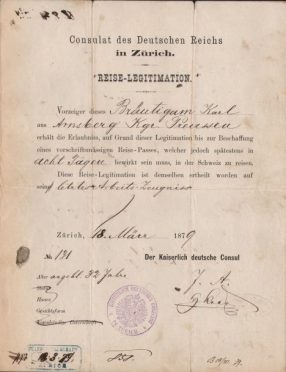 Consulat des Deutschen Reichs
in Zürich.
REISE-LEGITIMATION.
Vorzeiger dieses Bräutigam Karl
aus Arnsberg Kgr. Preussen
erhält die Erlaubniss, auf Grund dieser Legitimation bis zur Beschaffung
eines vorschriftsmässigen Reise-Passes, welcher jedoch spätestens in
acht Tagen bewirkt sein muss, in der Schweiz zu reisen.
Diese Reise-Legitimation ist demselben ertheilt worden auf
sein letztes Arbeits-Zeugniss
Zürich, 13. März 1879
№ 131
Der Kaiserlich deutsche Consul
Alter angebl. 32 Jahre
J. A.
Haare
Gesichtsform